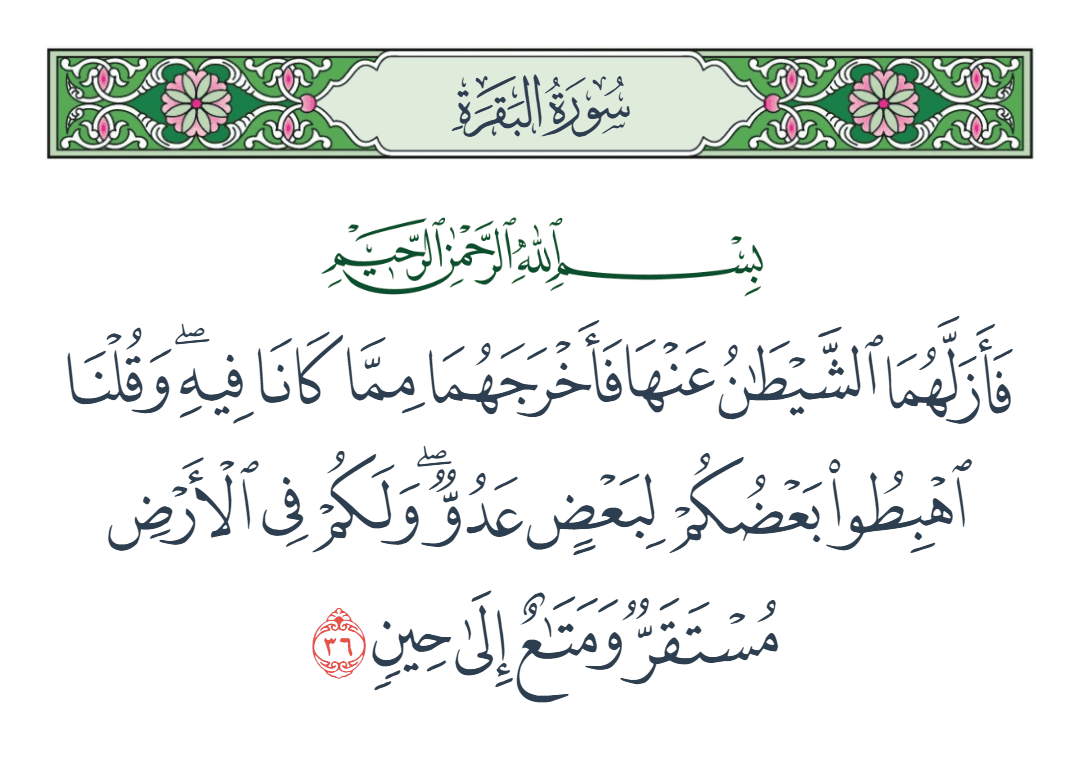 سُورَةُ البَقَرَةِ
بِسْمِ ٱللَّهِ ٱلرَّحْمَٰنِ ٱلرَّحِيمِ
فَأَزَلَّهُمَا ٱلشَّيْطَٰنُ عَنْهَا فَأَخْرَجَهُمَا مِمَّا كَانَا فِيهِۖ وَقُلْنَا
ٱهْبِطُوا۟ بَعْضُكُمْ لِبَعْضٍ عَدُوٌّۖ وَلَكُمْ فِى ٱلْأَرْضِ
مُسْتَقَرٌّ وَمَتَٰعٌ إِلَىٰ حِينٍ ٣٦